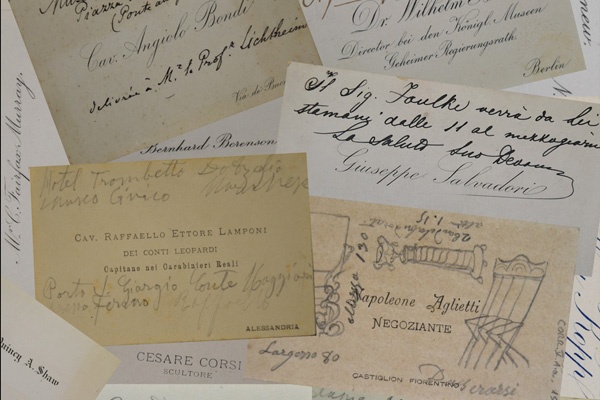 Piazza
(Ponte a
Cav. Angiolo Bondi
delivrée à Mr. le Profr. Lichtheim
Via de
Dr. Wilhelm B
Director bei den Königl. Museen
Geheimer Regierungsrath.
Berlin
Mr. C. Fairfax Murray.
Bernhard Berenson
Il Sig. Foulke verrà da Lei
stamani dalle 11 al mezzogiorno
La saluto suo
Giuseppe Salvadori
Hotel Trombetta
Museo Civico
Cav. Raffaello Ettore Lamponi
dei Conti Leopardi
Capitano nei Carabinieri Reali
Porto S. Giorgio Conte
Fermo
Alessandria
alt. 1.15
130
Napoleone Aglietti
Negoziante
Largezza 80
Castiglion Fiorentino
Quincy A. Shaw
Cesare Corsi
Scultore